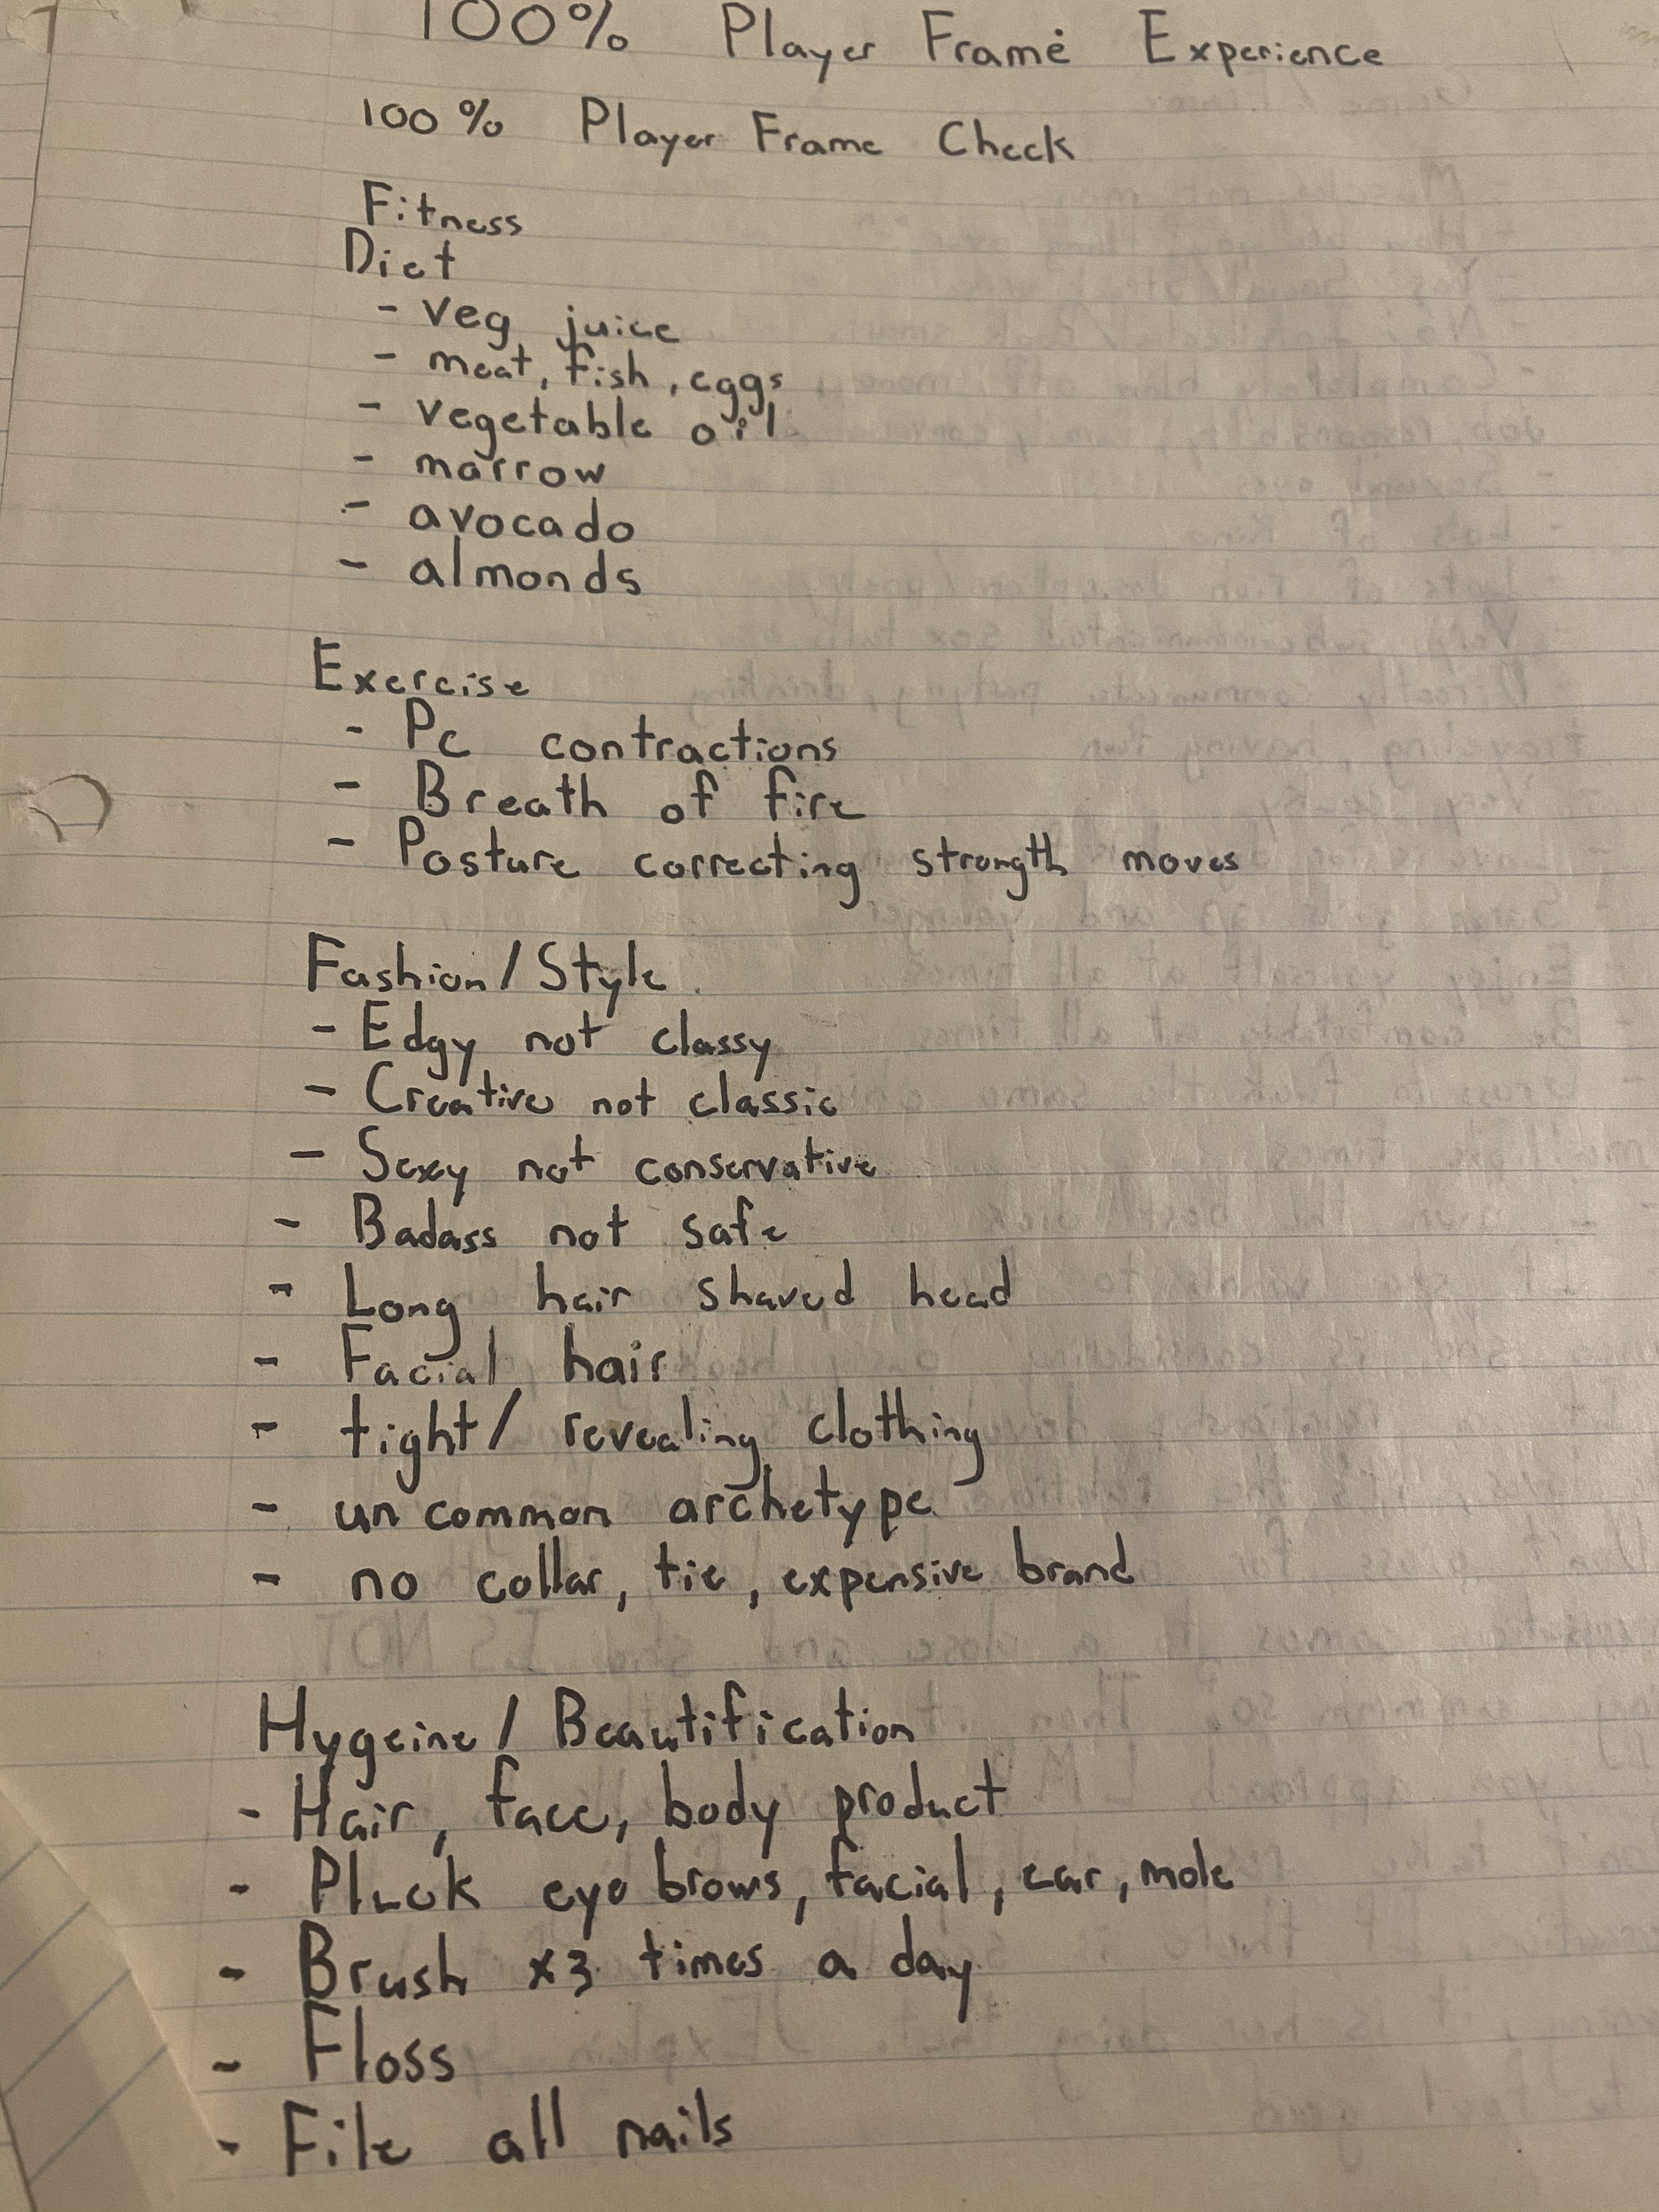 100% Player Frame Experience
100% Player Frame Check
Fitness
Diet
- veg juice
- meat, fish, eggs
- vegetable oil
- marrow
- avocado
- almonds
Exercise
- Pc contractions
- Breath of fire
- Posture correcting strength moves
Fashion/Style
- Edgy not classy
- Creative not classic
- Sexy not conservative
- Badass not safe
- Long hair shaved head
- Facial hair
- tight/ revealing clothing
- un common archetype
- no collar, tie, expensive brand
Hygeine/ Beautification
- Hair, face, body product
- Pluck eye brows, facial, ear, mole
- Brush x3 times a day
- Floss
- File all nails